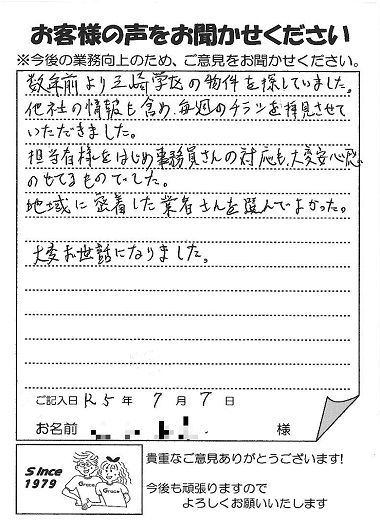 お客様の声をお聞かせください
※今後の業務向上のため、ご意見をお聞かせください。
数年前より三崎学区の物件を探していました。
他社の情報も含め、毎週のチラシを拝見させて
いただきました。
担当者様をはじめ事務員さんの対応も、大変安心感
のもてるものでした。
地域に密着した業者さんを選んでよかった。
大変お世話になりました。
ご記入日 R5 年 7 月 7 日
お名前 様
Since
1979
Grace
Grace
貴重なご意見ありがとうございます!
今後も頑張りますので
よろしくお願いいたします